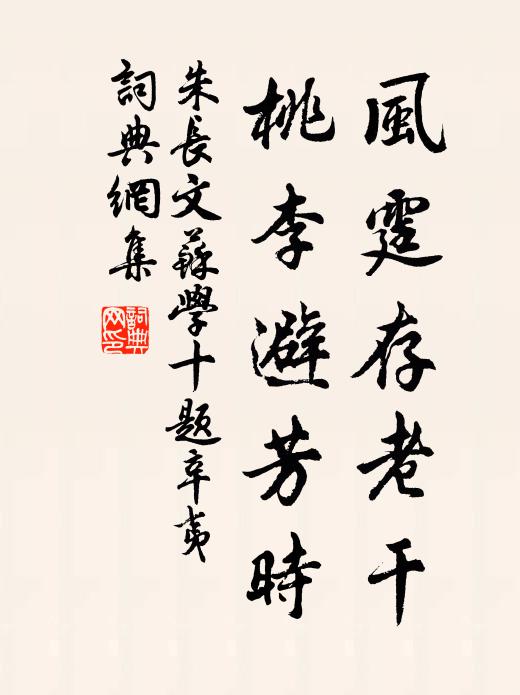 風霆存老干
桃李避芳時
朱長文蘇學十題辛夷
詞典網集
詞典网印